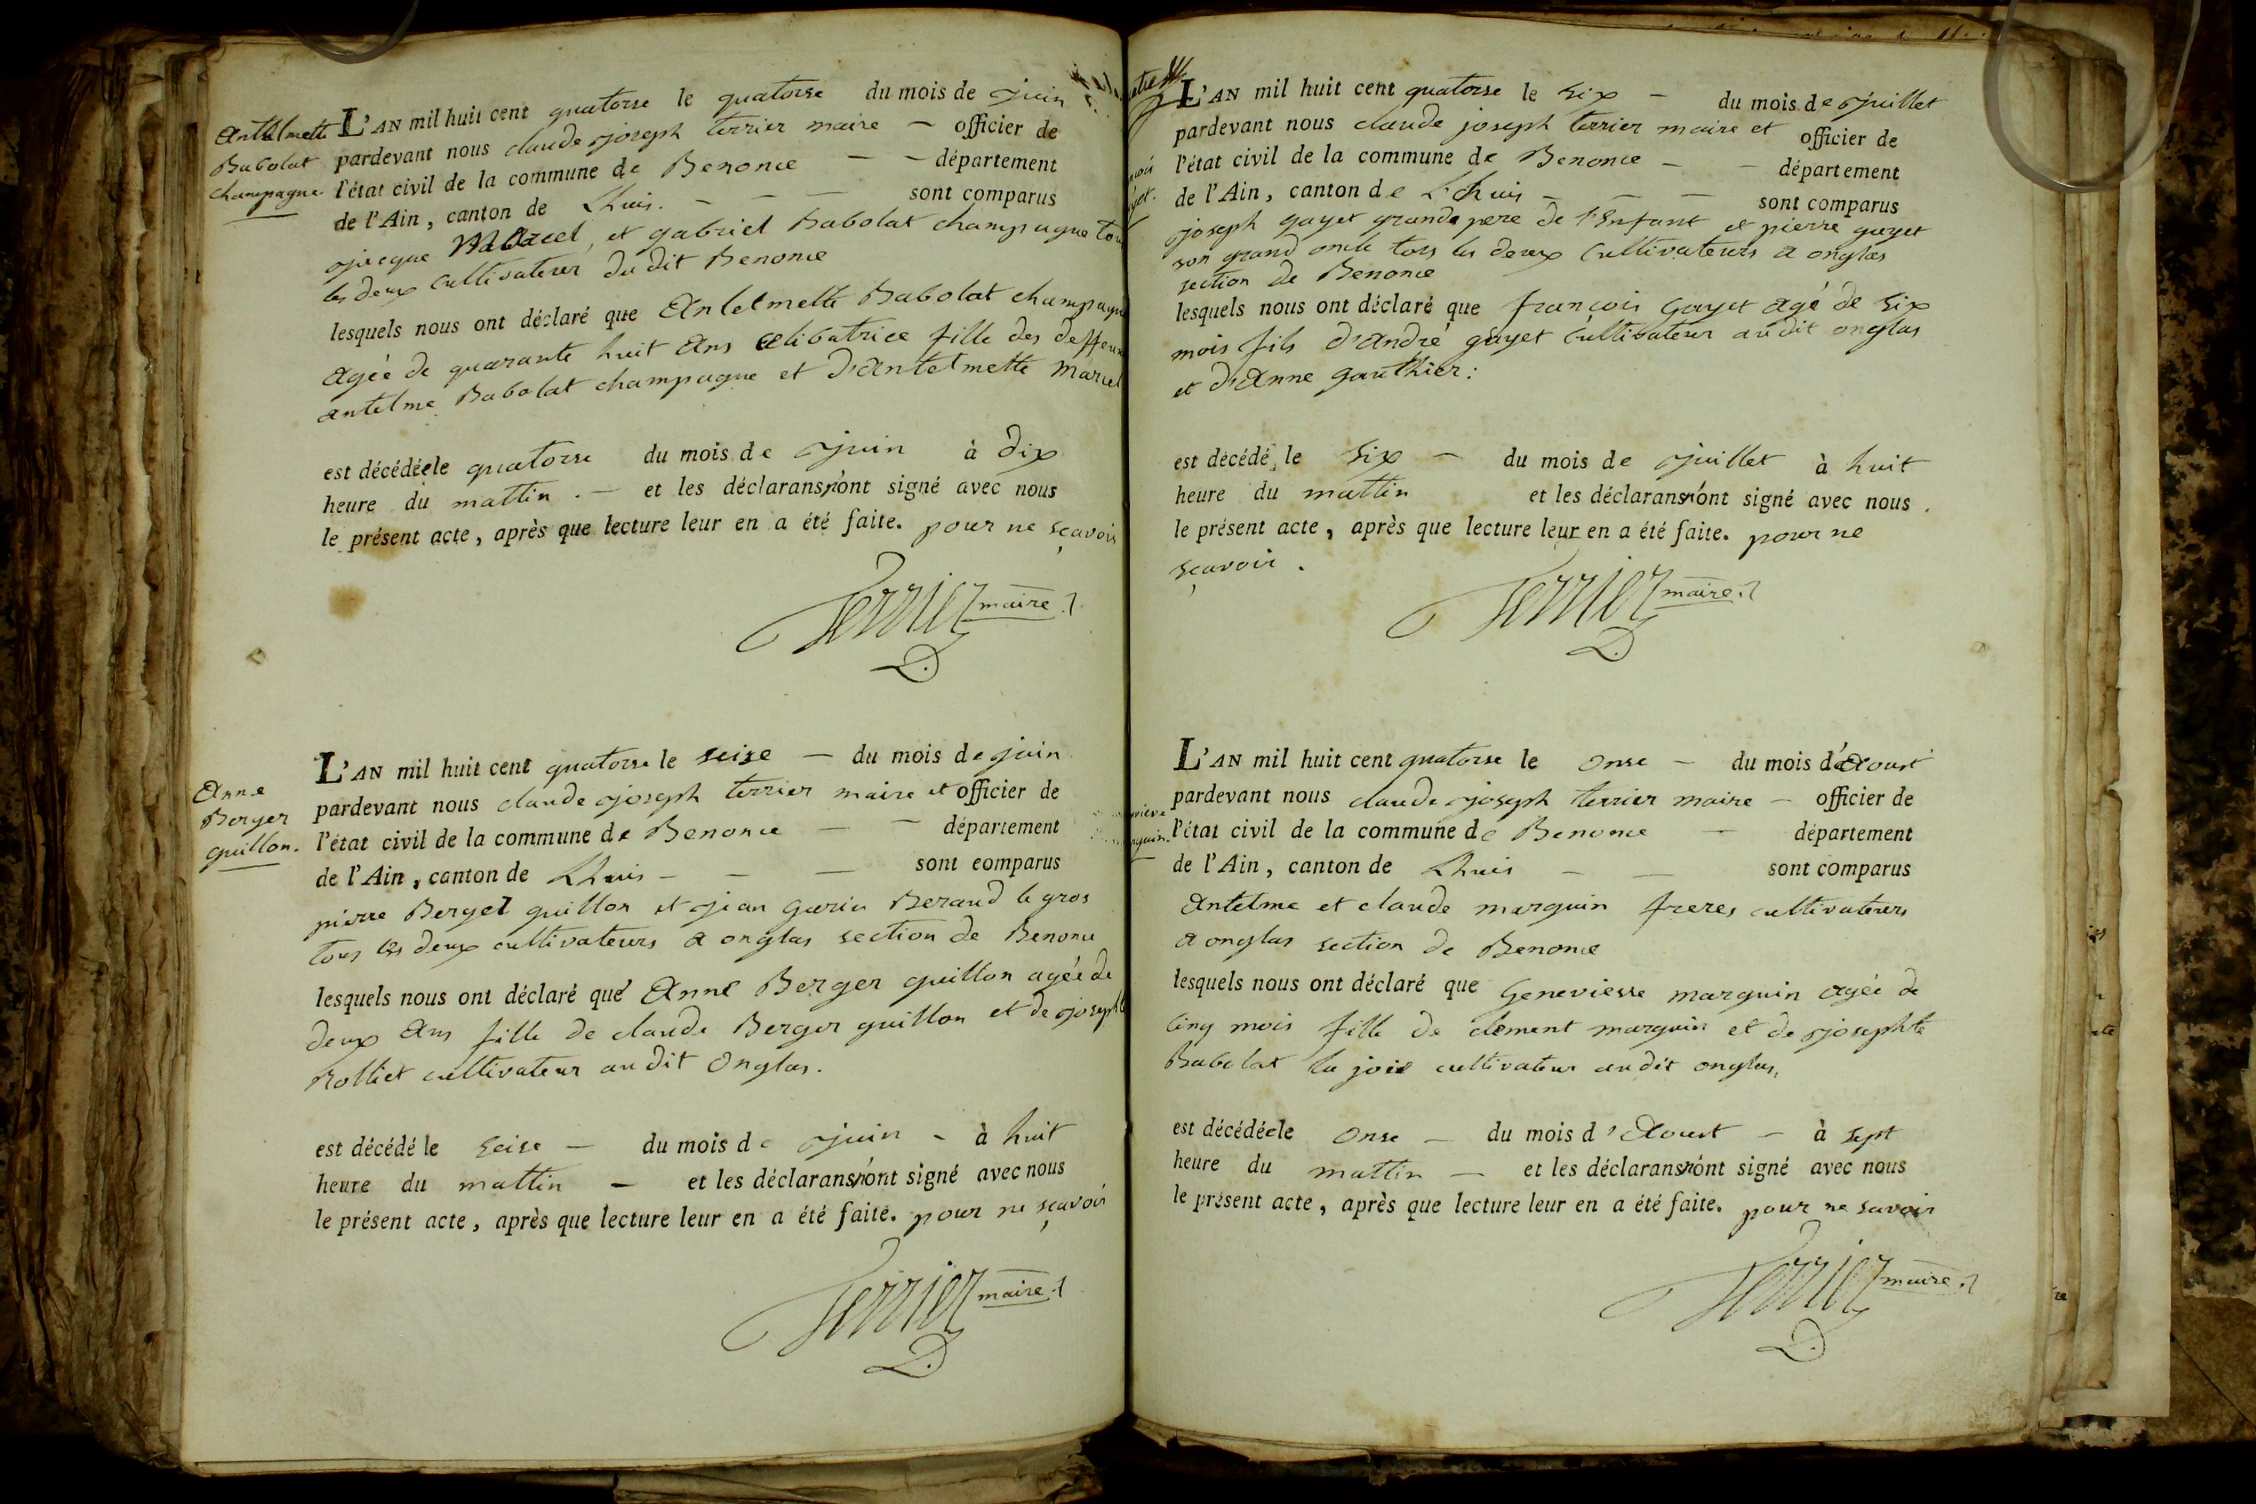 Antelmette
Babolat
champagne
L'AN mil huit cent quatorse le quatorse du mois de juin
pardevant nous claude joseph terrier maire — officier de
l'état civil de la commune de Benonce — — département
de l'Ain, canton de Lhuis. — — — sont comparus
jacque Marcel, et gabriel Babolat champagne tous
les deux cultivateur du dit Benonce
lesquels nous ont déclaré que Antelmette Babolat champagne
agée de quarante huit Ans célibatrice fille des deffeunt
antelme Babolat champagne et d'Antelmette Marcel
est décédée le quatorse du mois de juin à dix
heure du mattin . — et les déclarans n'ont signé avec nous
le présent acte, après que lecture leur en a été faite. pour ne sçavoir
Terrier maire
Anne
Berger
guillon.
L'AN mil huit cent quatorse le seise — du mois de juin
pardevant nous claude joseph terrier maire et officier de
l'état civil de la commune de Benonce — — département
de l'Ain, canton de Lhuis — — — sont comparus
pierre Berger guillon et jean Guerin Beraud le gros
tous les deux cultivateurs a onglas section de Benonce
lesquels nous ont déclaré que Anne Berger guillon agée de
deux Ans fille de claude Berger guillon et de josephte
Rolliet cultivateur au dit Onglas.
est décédé le seise — du mois de juin - à huit
heure du mattin — et les déclarans n'ont signé avec nous
le présent acte, après que lecture leur en a été faite. pour ne sçavoir
Terrier maire
L'AN mil huit cent quatorse le six — du mois de juillet
pardevant nous claude joseph terrier maire et officier de
l'état civil de la commune de Benonce — — département
de l'Ain, canton de L'huis — — — sont comparus
joseph gayet grande pere de l'Enfant et pierre gayet
son grand oncle tous les deux Cultivateurs a onglas
section de Benonce
lesquels nous ont déclaré que françois Gayet agé de six
mois fils d'André gayet Cultivateur au dit onglas
et d'Anne Gauthier:
est décédé le six — du mois de juillet à huit
heure du mattin et les déclarans n'ont signé avec nous
le présent acte, après que lecture leur en a été faite. pour ne
sçavoir .
Terrier maire
L'AN mil huit cent quatorse le onse — du mois d'Aoust
pardevant nous claude joseph terrier maire — officier de
l'état civil de la commune de Benonce — département
de l'Ain, canton de Lhuis — — sont comparus
Antelme et claude marguin freres cultivateurs
a onglas section de Benonce
lesquels nous ont déclaré que Geneviesse marguin agée de
cinq mois fille de clement marguin et de josephte
Babolat la joie cultivateur au dit onglas,
est décédée le Onse — du mois d'Aoust — à sept
heure du mattin — et les déclarans n'ont signé avec nous
le présent acte, après que lecture leur en a été faite. pour ne savoir
Terrier maire